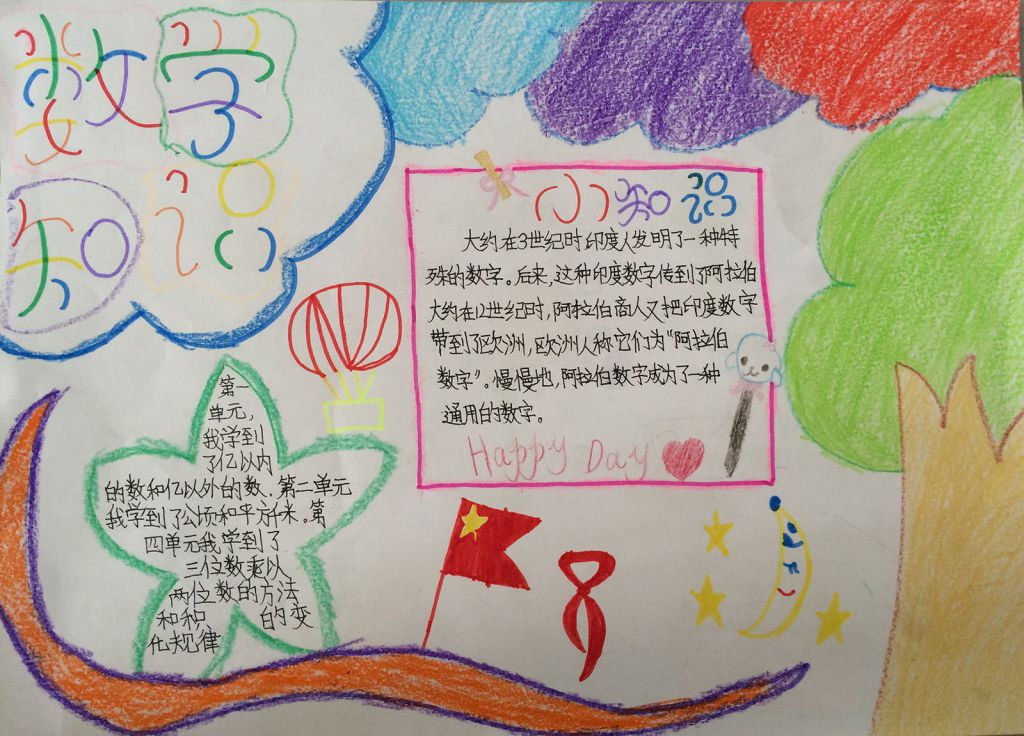 数学
知识
小知识
大约在3世纪时印度人发明了一种特
殊的数字。后来,这种印度数字传到了阿拉伯
大约在12世纪时,阿拉伯商人又把印度数字
带到了欧洲,欧洲人称它们为“阿拉伯
数字”。慢慢地,阿拉伯数字成为了一种
通用的数字。
Happy Day
第一
单元,
我学到
了亿以内
的数和亿以外的数、第二单元
我学到了公顷和平方千米。第
四单元我学到了
三位数乘以
两位数的方法
和积 的变
化规律